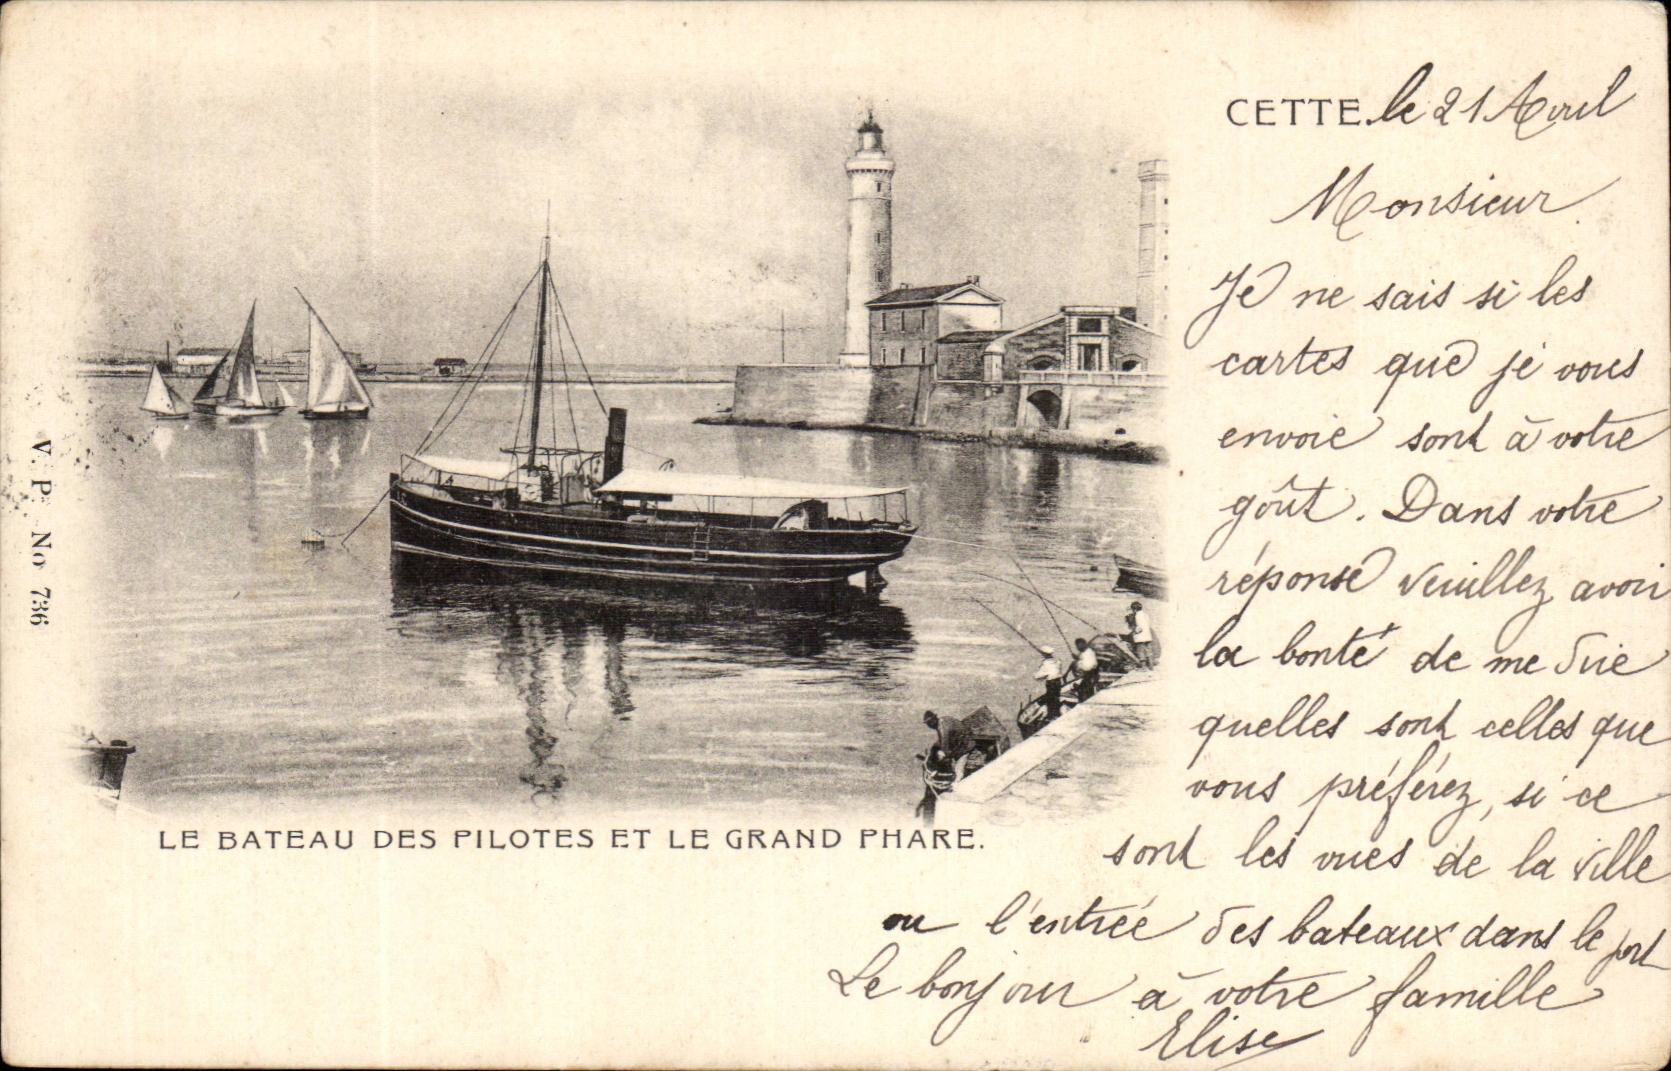 CETTE. le 21 Avril
Monsieur
Je ne sais si les
cartes que je vous
envoie sont à votre
goût. Dans votre
réponse veuillez avoir
la bonté de me dire
quelles sont celles que
vous préférez, si ce
sont les vues de la ville
ou l'entrée des bateaux dans le port
Le bonjour à votre famille
Elise
LE BATEAU DES PILOTES ET LE GRAND PHARE.
V. P. No 736